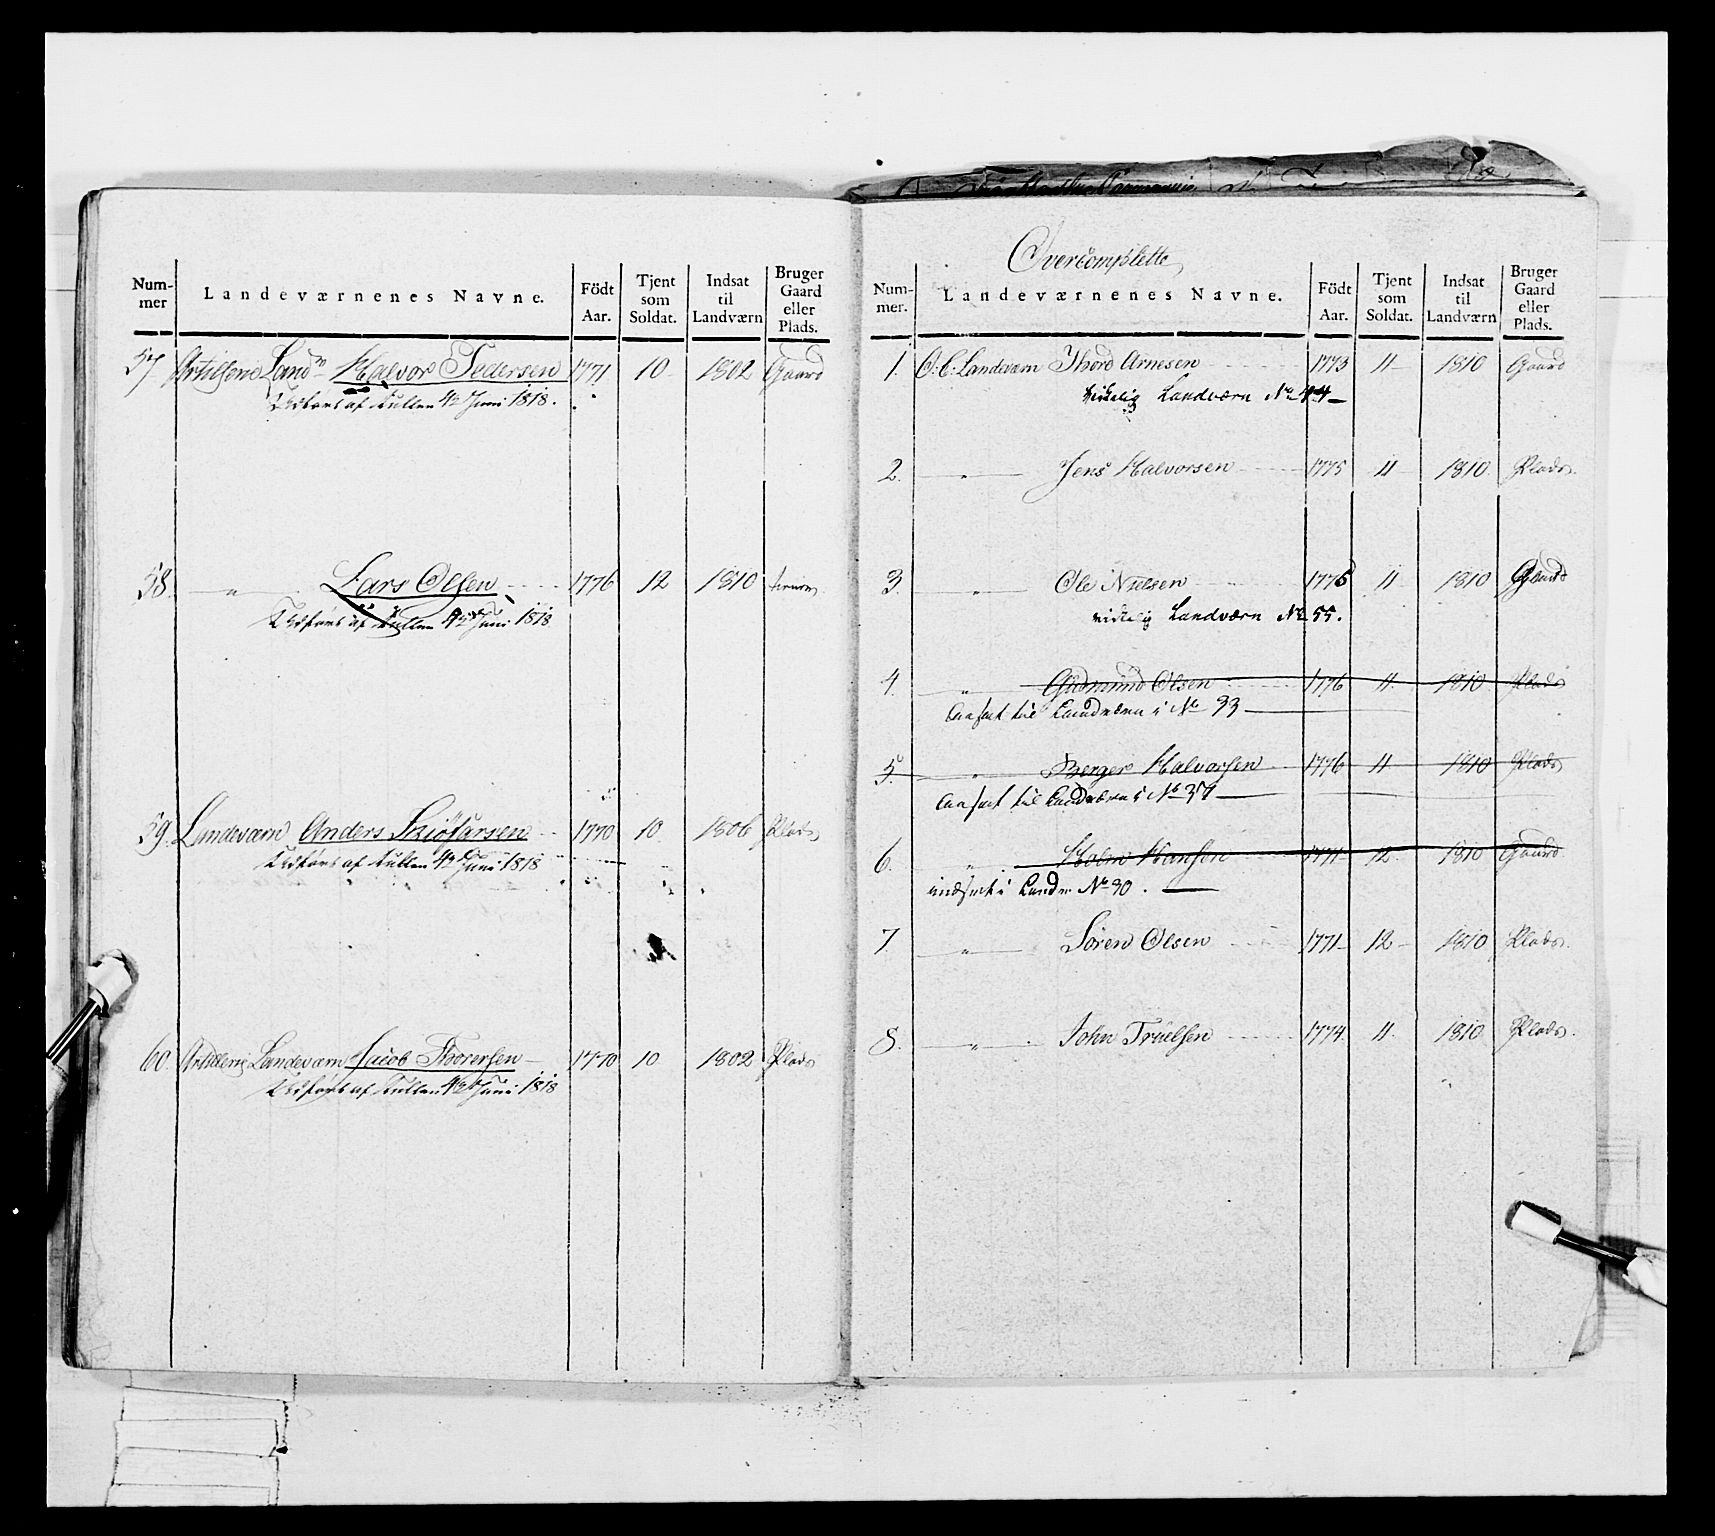 Num-
mer
Landeværnenes Navne.
Födt
Aar.
Tjent
som
Soldat.
Indsat
til
Landværn
Bruger
Gaard
eller
Plads.
57 Artillerie Land Halvor Pedersen 1771 10 1802 Gaard
Udført af Rullen 4de Juni 1818.
58. " Lars Olsen 1776 12 1810
Udført af Rullen 4de Juni 1818
59. Landeværn Anders 1770 10 1806 Plads
Udført af Rullen 4de Juni 1818
60. Artillerie Landeværn Jacob Thorersen 1770 10 1802 Plads
Udført af Rullen 4de Juni 1818
Overcomplette
Num-
mer.
Landeværnenes Navne.
Födt
Aar.
Tjent
som
Soldat.
Indsat
til
Landværn
Bruger
Gaard
eller
Plads.
1. O: C: Landeværn Thord Arnesen 1773 11 1810 Gaard
virkelig Landværn No 44
2. " Jens Halvorsen 1775 11 1810. Plads.
3. " Ole Nielsen 1775 11 1810
virkelig Landværn No 55.
4. " Gudmund Olsen 1776 11. 1810 Plads
til Landværn i No 33
5. " Berger Halvorsen 1776 11. 1810 Plads
til Landværn i No 37
6. " Holm Hansen 1771 12 1810 Gaard
indsat i Landv No 30.
7. " Sören Olsen 1771 12 1810 Plads.
8. " John Truelsen 1774. 11. 1810 Plads.